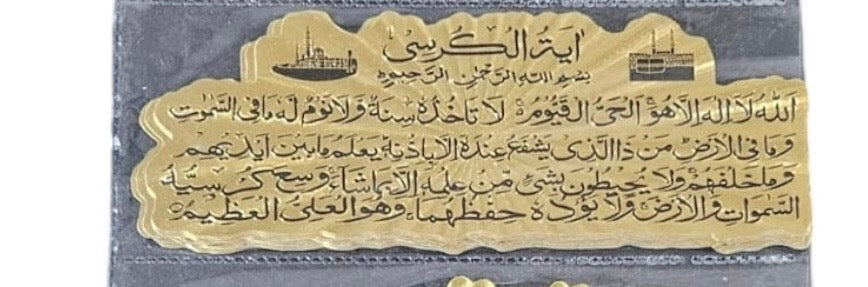 اية الكرسى
بسم الله الرحمن الرحيم
الله لا اله الا هو الحي القيوم لا تأخذه سنة ولا نوم له ما في السموت
وما في الارض من ذا الذي يشفع عنده الا باذنه يعلم ما بين ايديهم
وما خلفهم ولا يحيطون بشئ من علمه الا بما شاء وسع كرسيه
السموات والارض ولا يؤده حفظهما وهو العلي العظيم